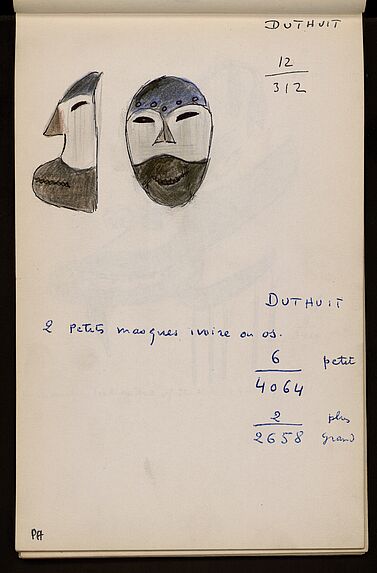 DUTHUIT
12
312
DUTHUIT
2 petits masques ivoire ou os.
6 petit
4064
2 plus
2658 grand
PA